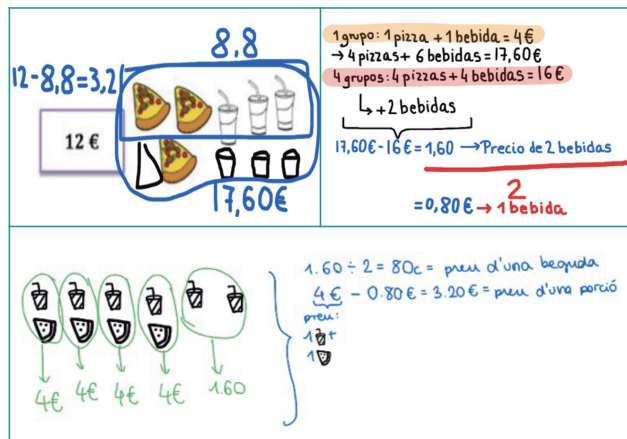 8,8
12-8,8=3,2
12 €
17,60€
1 grupo: 1 pizza + 1 bebida = 4€
→ 4 pizzas + 6 bebidas = 17,60€
4 grupos: 4 pizzas + 4 bebidas = 16€
↳ +2 bebidas
17,60€ - 16€ = 1,60 → Precio de 2 bebidas
2
= 0,80€ → 1 bebida
1.60 ÷ 2 = 80c = preu d'una beguda
4€ - 0.80€ = 3.20€ = preu d'una porció
preu:
1 +
1
4€ 4€ 4€ 4€ 1.60